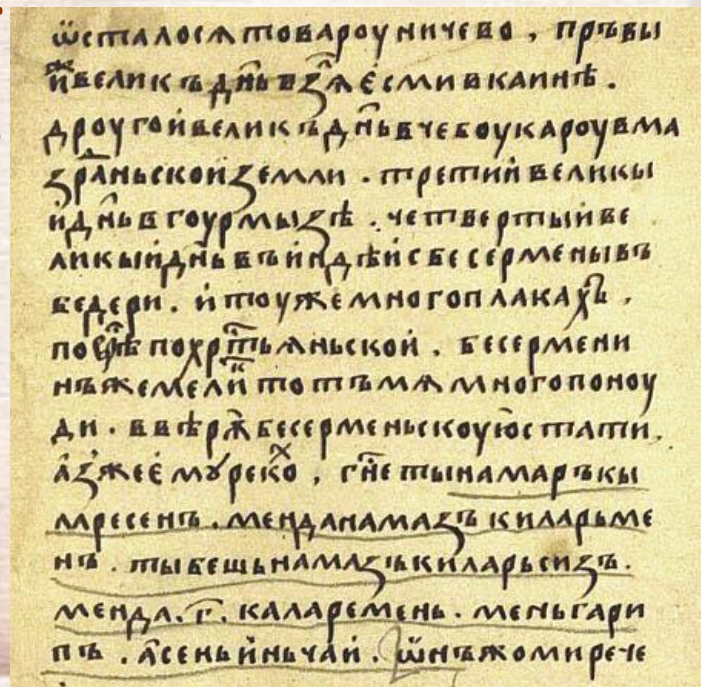 ѿсталосѧ товароу ничево , пръвы
и҆ великъ дн҃ь взѧⷧ҇ є҆сми в каинѣ .
дроугой великъ дн҃ь в чебоукароу в ма
здраⷩ҇ьской земли . третий великы
й дн҃ь в гоурмызѣ . четвертый ве
ликый дн҃ь въ и҆ндѣй с бесермены въ
бедери . и҆ тоу же много плакахъ ,
по вѣрѣ по хрⷭ҇тьѧньской . бесермени
нъ же мелиⷦ҇ тотъ мѧ много поноу
ди . в вѣрꙋ бесерменьскоую стати .
а҆з же є҆мꙋ рекоⷯ , гн҃е ты намаръ кы
ларесенъ . мен да намазъ киларьме
нъ . ты бешь намазъ киларьсизъ .
мен да . г҃ . каларемень . мень гари
пъ . а҆сень и҆ньчай . ѿнъ ж ко ми рече